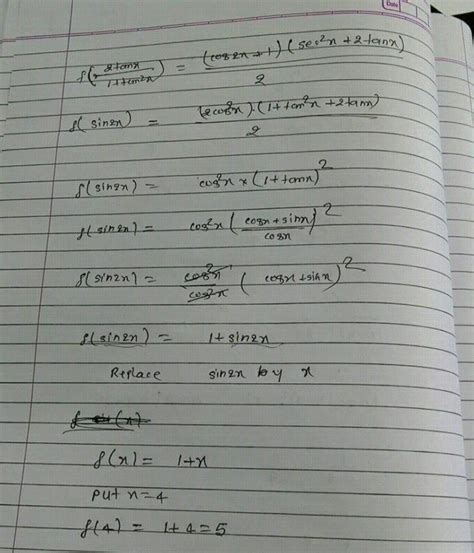 Date
f(2tanx/1+tan²x) = (cos2x+1)(sec²x+2tanx)/2
f(sin2x) = (2cos²x).(1+tan²x+2tanx)/2
f(sin2x) = cos²x × (1+tanx)²
f(sin2x) = cos²x (cosx+sinx/cosx)²
f(sin2x) = cos²x/cos²x (cosx+sinx)²
f(sin2x) = 1+sin2x
Replace sin2x by x
f (x)
f(x) = 1+x
Put x=4
f(4) = 1+4=5